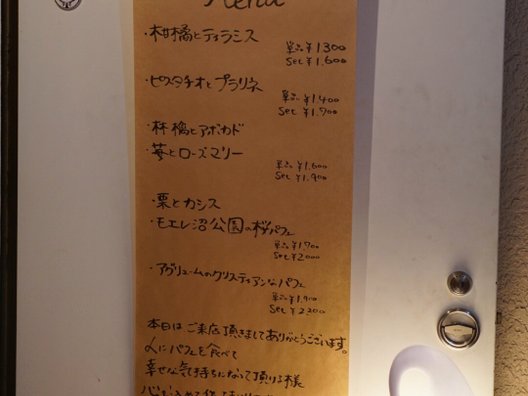 Menu
・柑橘とティラミス
単品 ¥1300
Set ¥1.600
・ピスタチオとプラリネ
単品 ¥1.400
Set ¥1.700
・林檎とアボカド
・苺とローズマリー
単品 ¥1.600
Set ¥1.900
・栗とカシス
・モエレ沼公園の桜パフェ
単品 ¥1.700
Set ¥2000
・アグリュームのクリスティアンなパフェ
単品 ¥1.900
Set ¥2200
本日はご来店頂きましてありがとうございます。
人にパフェを食べて
幸せな気持ちになって頂ける様
心を込めて作